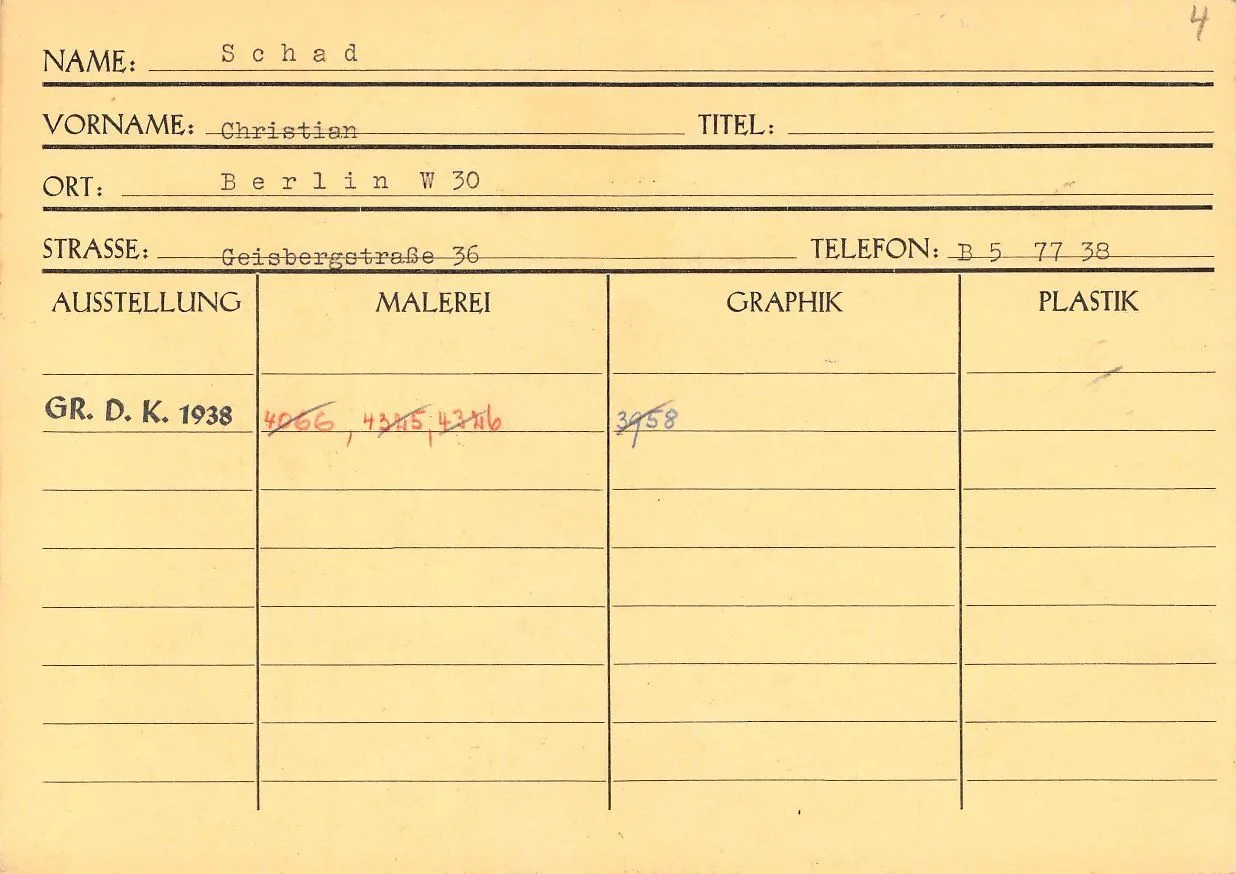 4
NAME: Schad
VORNAME: Christian TITEL:
ORT: Berlin W 30
STRASSE: Geisbergstraße 36 TELEFON: B 5 77 38
AUSSTELLUNG MALEREI GRAPHIK PLASTIK
GR. D. K. 1938 4066, 4345, 4346 3958